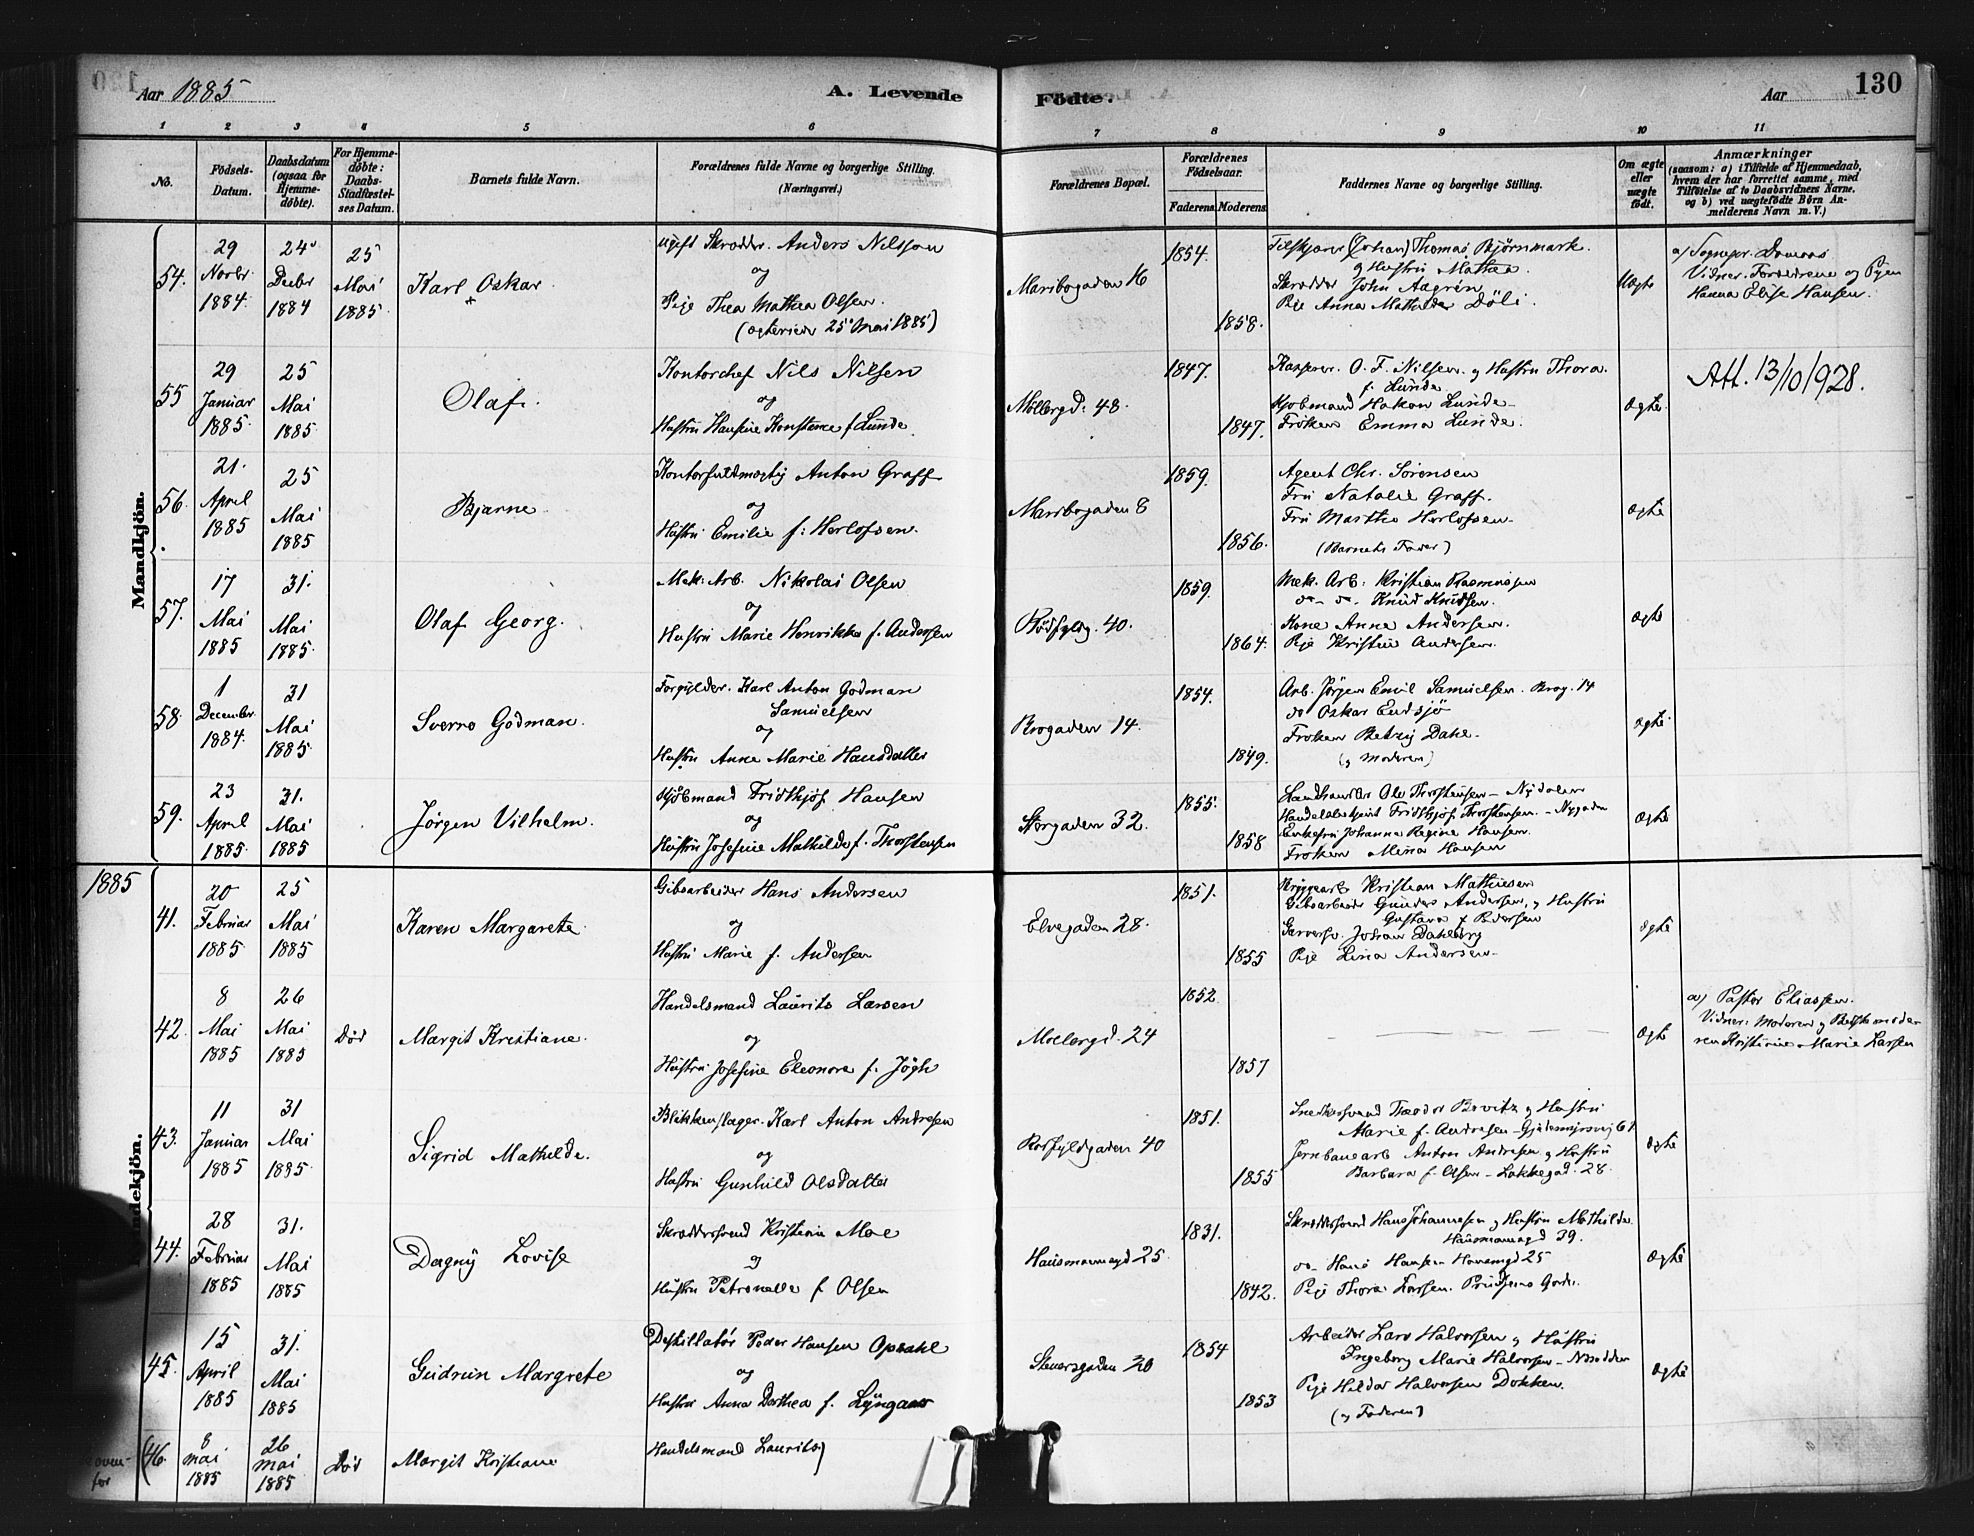 130
Aar 1885
A. Levende Födte.
Aar
1 2 3 4 5 6 7 8 9 10 11
No.
Födsels-
Datum.
Daabsdatum
(ogsaa for
Hjemme-
döbte).
For Hjemme-
döbte:
Daabs-
Stadfæstel-
ses Datum.
Barnets fulde Navn.
Forældrenes fulde Navne og borgerlige Stilling.
(Næringsvei.)
Forældrenes Bopæl.
Forældrenes
Födselsaar.
Faderens. Moderens.
Faddernes Navne og borgerlige Stilling.
Om ægte
eller
uægte
födt.
Anmærkninger
(saasom: a) i Tilfælde af Hjemmedaab,
hvem der har forrettet samme, med
Tilföielse af to Daabsvidners Navne.
og b) ved uægtefödte Börn An-
melderens Navn m. V.)
Mandkjön.
54.
29
Novbr.
1884.
24
Decbr
1884
25
Mai
1885.
Karl Oskar
ugift Skrædder. Anders Nilsson
og
Pige Thea Mathea Olsen.
(ægteviet 25 Mai 1885)
Maribogaden 16
1854.
1858.
(Johan) Thomas Bjørnmark
og Hustru Mathea.
Skrædder John Aagrén
Pige Anna Mathilde Döli.
Uægte
a/ Sognepr.
Vidner. Forældrene og Pigen
Hanna Elise Hansen.
55
29
Januar
1885.
25
Mai
1885.
Olaf.
Kontorchef Nils Nilsen
og
Hustru Hansine Konstance f. Lunde.
Möllergd. 48.
1847.
1847.
Kasserer. O. F. Nilsen. og Hustru Thora.
f. Lunde.
Kjøbmand Hakon Lunde
Fröken Emma Lunde.
Ægte
Att. 13/10/928.
56.
21.
April
1885
25
Mai
1885
Bjarne
Kontorfuldmægtig Anton Graff
og
Hustru Emilie f: Herlofsen.
Maribogaden 8
1859.
1856.
Agent Chr. Sörensen
Fru Natalie Graff.
Fru Marthe Herlofsen
(Barnets Fader)
Ægte
57.
17
Mai
1885
31.
Mai
1885.
Olaf Georg.
Mek. Arb. Nikolai Olsen
og
Hustru Marie Henrikka f. Andersen
Rödfyldg. 40.
1859.
1864.
Mek. Arb. Kristian Rasmussen
do do. Knud Knudsen.
Kone Anna Andersen.
Pige Kristine Andersen.
Ægte
58.
1
December
1884.
31
Mai
1885.
Sverre Godman.
Forgylder. Karl Anton Godman
Samuelsen
og
Hustru Anne Marie Hansdatter
Brogaden 14.
1854.
1849.
Arb. Jörgen Emil Samuelsen. Brog. 14
do Oskar Endsjö
Fröken Betzy Dahl
(og Moderen)
Ægte
59.
23
April
1885.
31.
Mai
1885
Jörgen Vilhelm.
Kjöbmand Fridthjof Hansen
og
Hustru Josefine Mathilde f. Thorstensen
Storgaden 32.
1855.
1858
Landhandler Ole Thorstensen - Nydalen
Handelsbetjent Fridthjof Thorstensen. - Nygaden
Enkefru Johanne Regine Hansen.
Fröken Mina Hansen
Ægte
1885
Kvindekjön.
41.
20
Februar
1885
25
Mai
1885
Karen Margarete
Gibsarbeider Hans Andersen
og
Hustru Marie f. Andersen
Elvegaden 28.
1851.
1855
Bryggearb Kristian Mathiesen
Gibsarbeider Gunder Andersen, og Hustru
Gustava f Pedersen
Garversv. Johan Dahlberg
Pige Lina Andersen
Ægte
42.
8
Mai
1885
26
Mai
1885
Död
Margit Kristiane.
Handelsmand Laurits Larsen
og
Hustru Josefine Eleonora f. Jögh
Möllergd. 24
1852
1857
Ægte
a) Pastor Eliassen.
Vidner: Moderen og Bedstemode-
ren Kristiane Marie Larsen
43.
11
Januar
1885
31
Mai
1885.
Sigrid Mathilde.
Blikkenslager. Karl Anton Andresen
og
Hustru Gunhild Olsdatter
Rødfyldgaden 40
1851.
1855
Snedkersvend Theodor Bovitz og Hustru
Marie f. Andresen - Gjetemyrsvej 61
Jernbanearb Anton Andresen og Hustru
Barbara f. Olsen - Lakkegad. 28.
Ægte
44.
28
Februar
1885
31.
Mai
1885
Dagny Lovise
Skræddersvend Kristian Moe
og
Hustru Petronelle f Olsen
Hausmannsgd 25
1831.
1842.
Skræddersvend Hans Johannesen og Hustru Mathilde
Hausmannsgd 39.
do Hans Hansen Hausmgd 25
Pige Thora Larsen.
Ægte
45.
15
April
1885
31.
Mai
1885
Gudrun Margrete
Destillatør Peder Hansen Opsahl
og
Hustru Anna Dorthea f. Lyngaas
Steensgaden 20
1854
1853
Arbeider Lars Halvorsen og Hustru
Ingeborg Marie Halvorsen - Nesodden
Pige Hilda Halvorsen Dokken.
(og Faderen)
Ægte
oven-
for
(46.
8
mai
1885
26
mai
1885
Död
Margit Kristiane
Handelsmand Laurits)